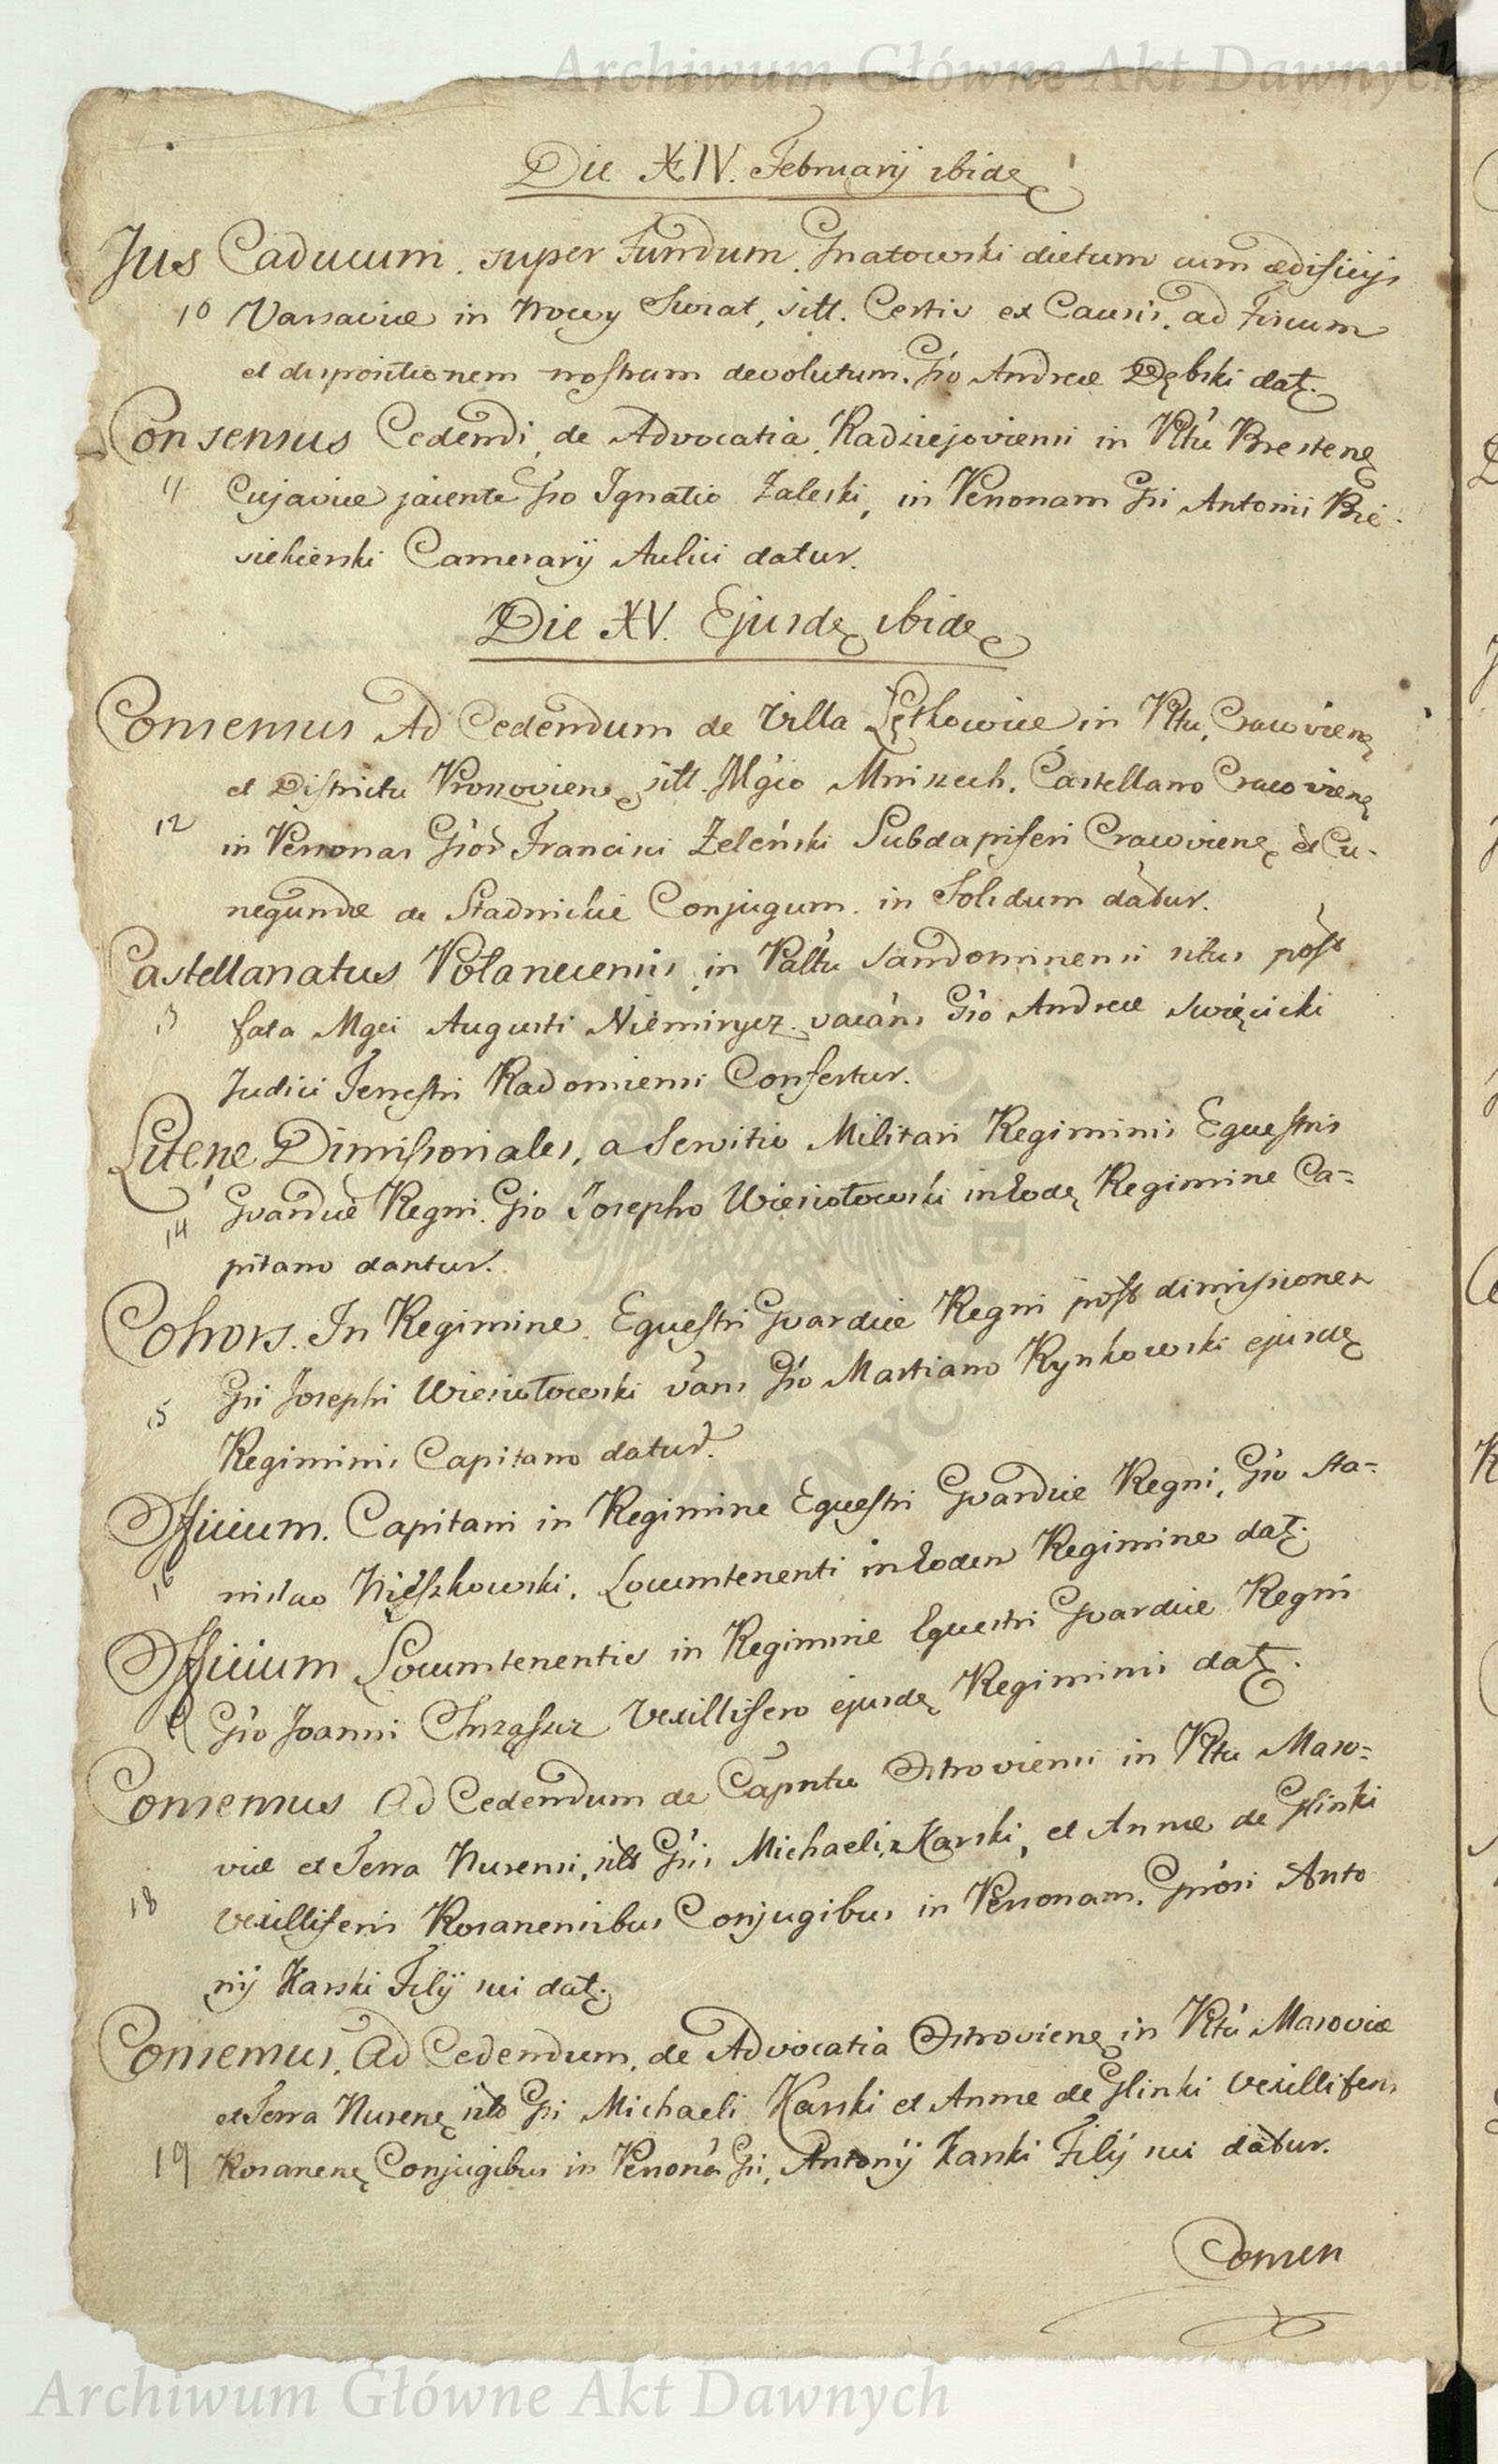 Archiwum Główne Akt Dawnych
Die XIV. Februarij ibidę
Jus Caducum super Fundum Gnatowski dictum cum ædificijs
10 Varsaviæ in Nowy Swiat, sitt. Certis ex Causis ad Fiscum
et dispositionem nostram devolutum. Gio Andreæ Dębski datę.
Consensus Cedendi de Advocatia Radziejoviensi in Pltú Brestenę
11 Cujaviæ jacente Gio Ignatio Zaleski, in Personam Gsi Antonii Bie
siekierski Camerarij Aulici datur.
Die XV. Ejusdę ibidę
Consensus Ad Cedendum de Villa Lętkowice in Pltu, Cracovienę
et Districtu Proszoviensę sitt. Mgıo Mniszech, Castellano Cracovienę
12 in Personas Gıoȓ Francisci Zeleński Subdapiferi Cracovienę et Cu-
negundæ de Stadnickie Conjugum in Solidum datur.
Castellanatus Połanecensis in Paltu Sandominensi situs post
13 fata Mgci Augusti Niemirycz vacáns Gio Andreæ Swięcicki
Judici Terrestri Radomiensi Confertur.
Literę Dimissoriales, a Servitio Militari Regiminis Equestris
14 Gvardiæ Regni Gio Josepho Wiesiołowski in Eodę Regimine Ca=
pitano dantur.
Cohors. In Regimine Equestri Gvardiæ Regni post dimissionem
15 Gsi Josephi Wiesiołowski vans Gio Martiano Rynkowski ejusdę
Regiminis Capitano datur.
Officium. Capitani in Regimine Equestri Gvardiæ Regni, Gio Sta=
16 nislao Nieszkowski, Locumtenenti in Eodem Regimine datę.
Officium Locumtenentis in Regimine Equestri Gvardiæ Regni
Gio Joanni Chrząszcz Vexillifero ejusdę Regiminis datę.
Consensus Ad Cedendum de Capntu Ostroviensi in Pltu Maso=
viæ et Terra Nurensi, sito Gsis Michaeli Karski, et Annæ de Glinki
18 Vexilliferis Rosanensibus Conjugibus in Personam Gnósi Anto
nij Karski Filij sui datę.
Consensus, Ad Cedendum, de Advocatia Ostrovienę in Pltú Masoviæ
et Terra Nurenę sito Gsi Michaeli Karski et Annæ de Glinki Vexilliferis
19 Rosanenę Conjugibus in Personá Gsi, Antonij Karski Filij sui datur.
Consen
Archiwum Główne Akt Dawnych